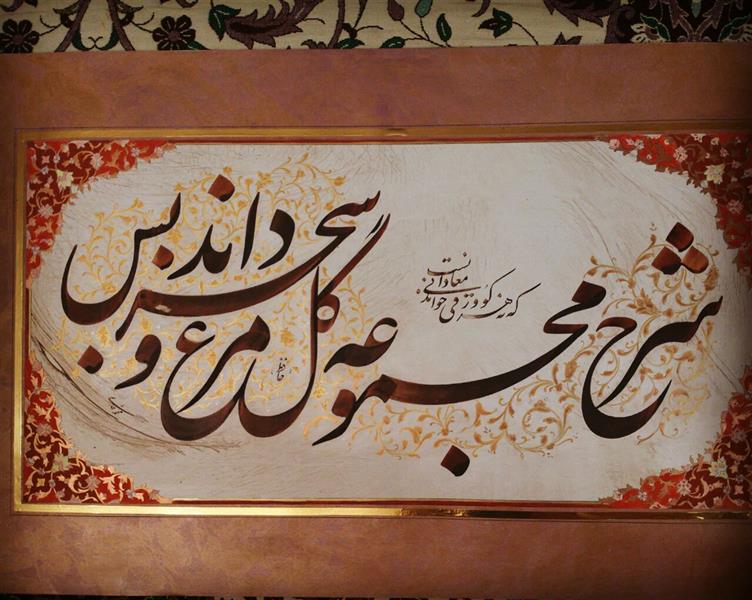 شرح مجموعه گل مرغ سحر داند و بس
که نه هر کو ورقی خواند معانی دانست
حافظ